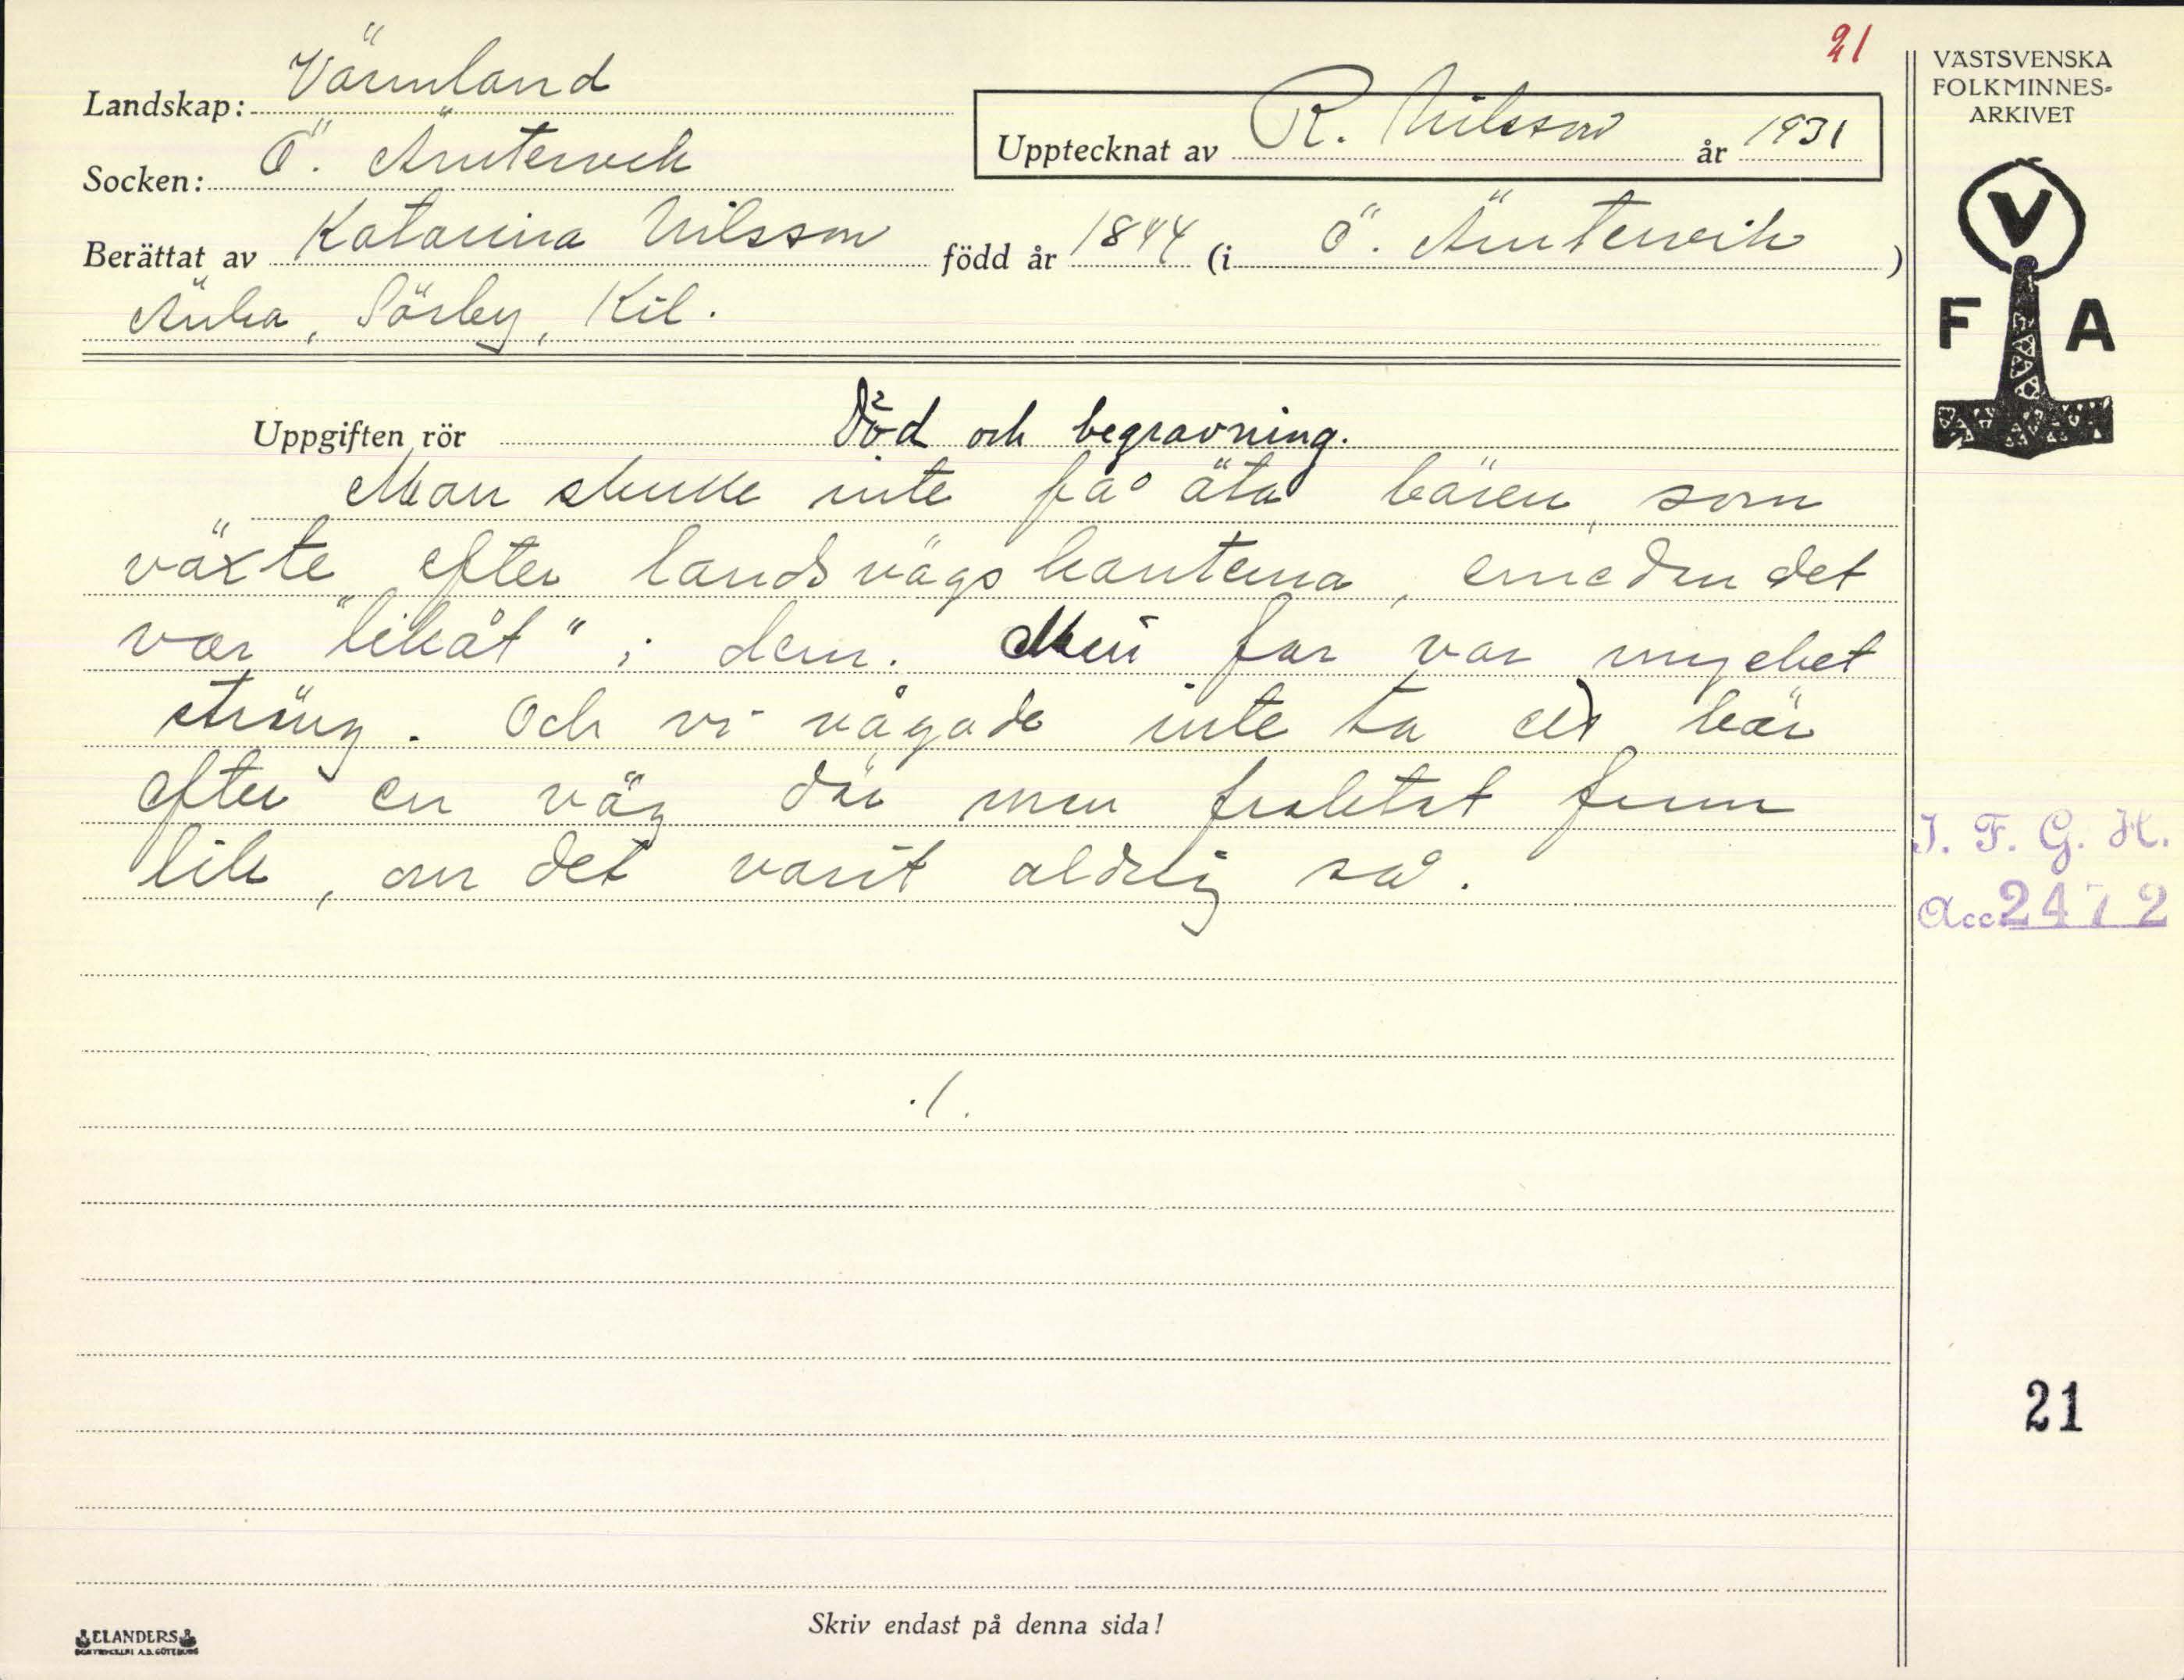 21
VÄSTSVENSKA
FOLKMINNES-
ARKIVET
Landskap: Värmland
Upptecknat av R. Nilsson år 1931
Socken: Ö. Ämtervik
Berättat av Katarina Nilsson född år 1844 (i Ö. Ämtervik)
Änka, Sörby, Kil.
V
F A
Uppgiften rör Död och begravning.
Man skulle inte få äta bären, som
växte efter landsvägskanterna, emedan det
var "likåt" i dem. Min far var mycket
sträng. Och vi vågade inte ta ett bär
efter en väg där man fraktat fram
lik, om det varit aldrig så.
I. F. G. H.
Acc 2472
./.
21
Skriv endast på denna sida!
ELANDERS
BOKTRYCKERI A.B. GÖTEBORG